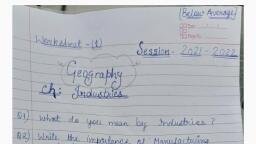 Below Average
Worksheet - (1)
Session - 2021 - 2022
Geography
Ch: Industries
Q1) What do you mean by Industries ?
Q2) Write the importance of Manufacturing